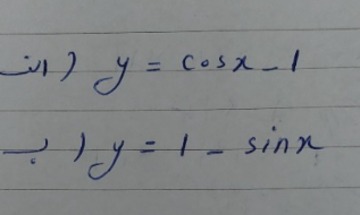 الف) y = cosx - 1
ب) y = 1 - sinx